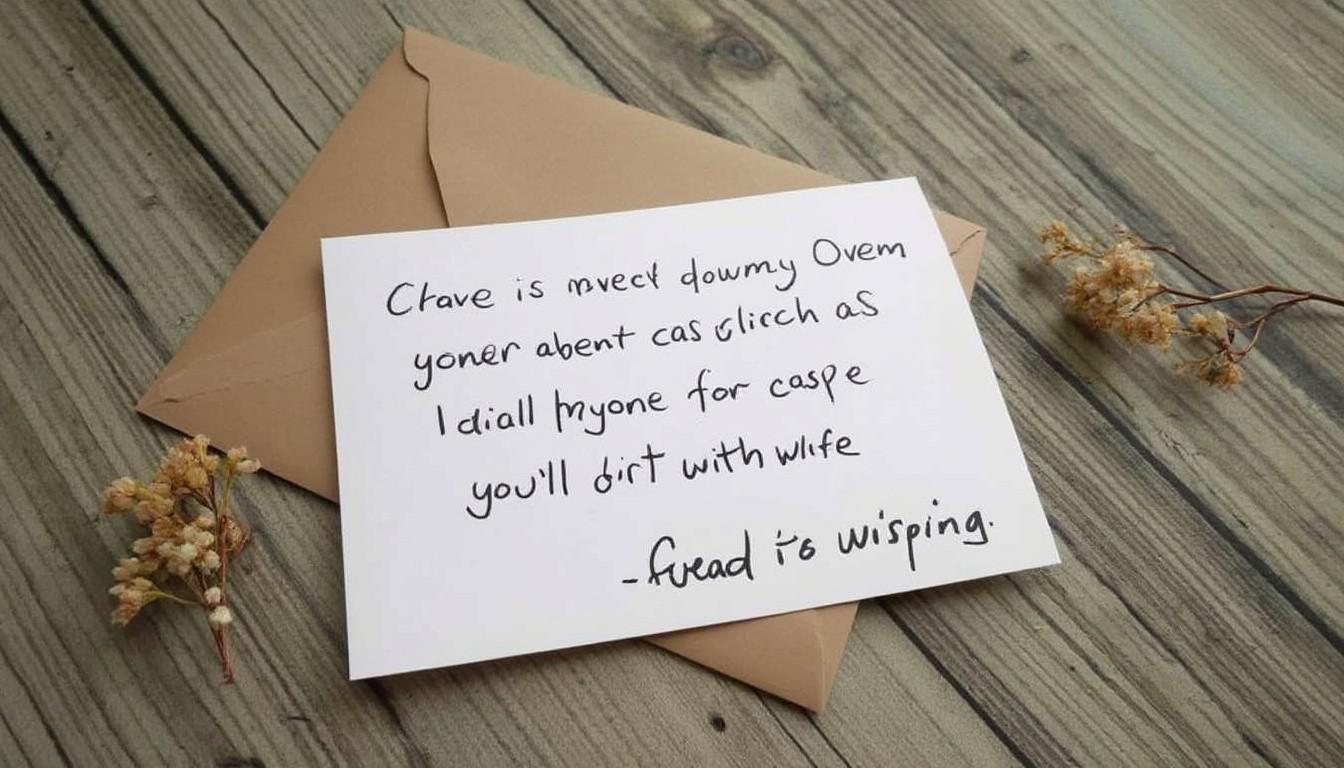 Ctave is mvect dowmy Ovem
yoner abent cas clicch as
I diall myone for caspe
you'll dirt with wlife
-fvead is wisping.